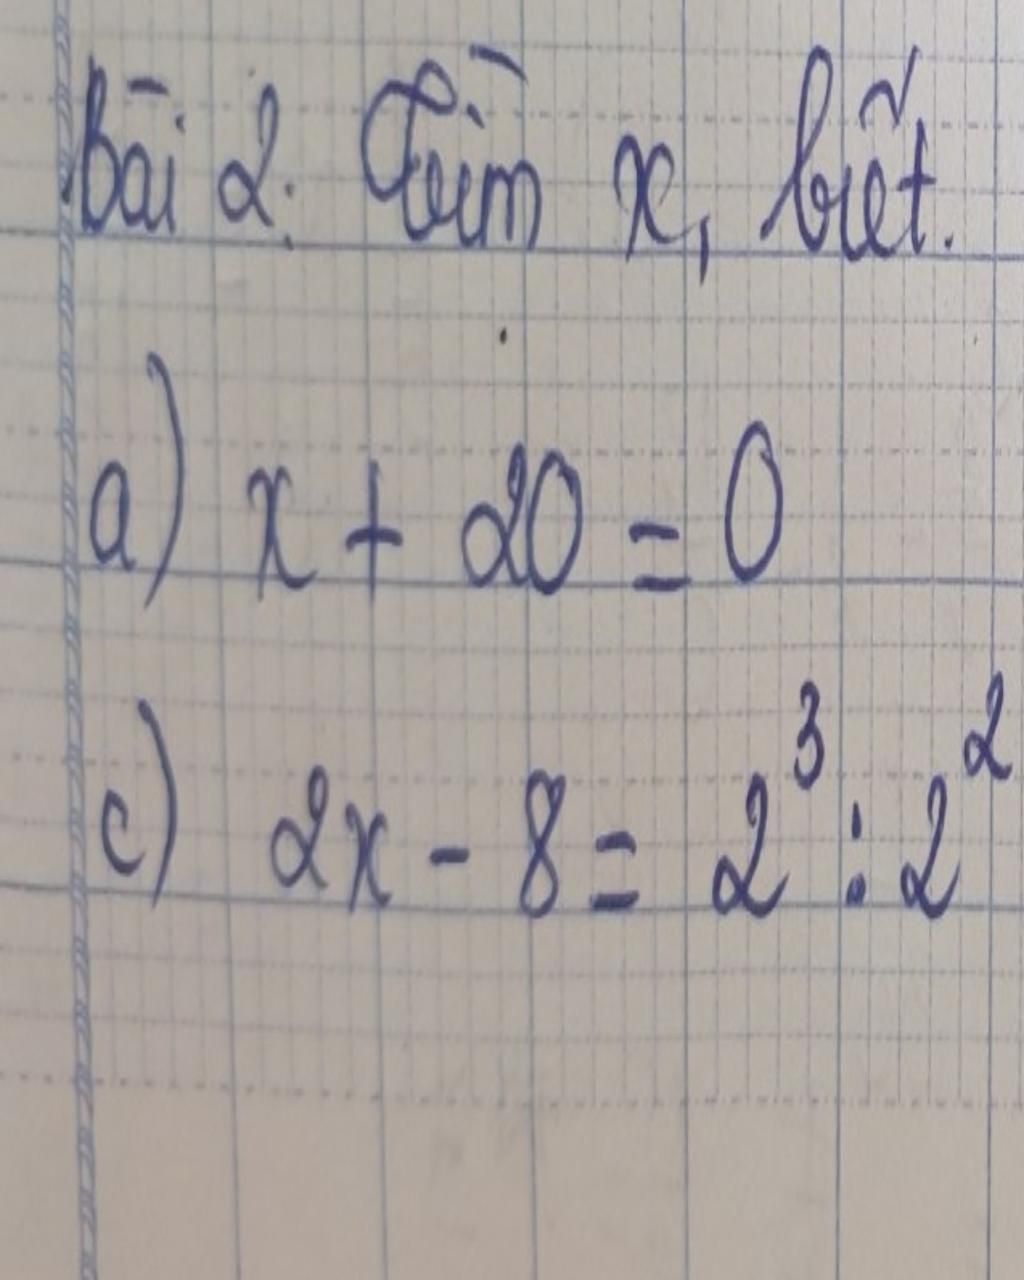 Bài 2: Tìm x, biết.
a) x + 20 = 0
c) 2x - 8 = 2³ : 2²